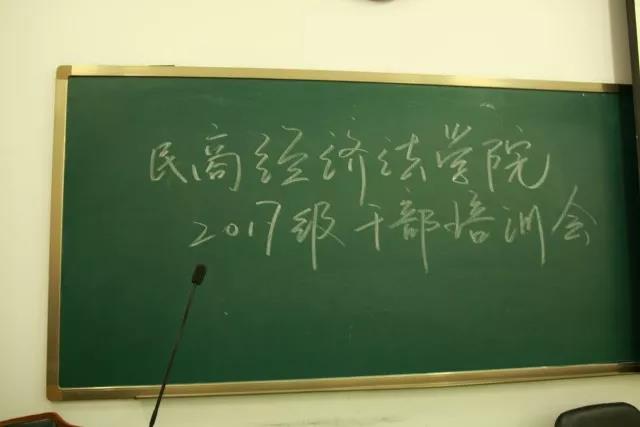 民商经济法学院
2017级干部培训会